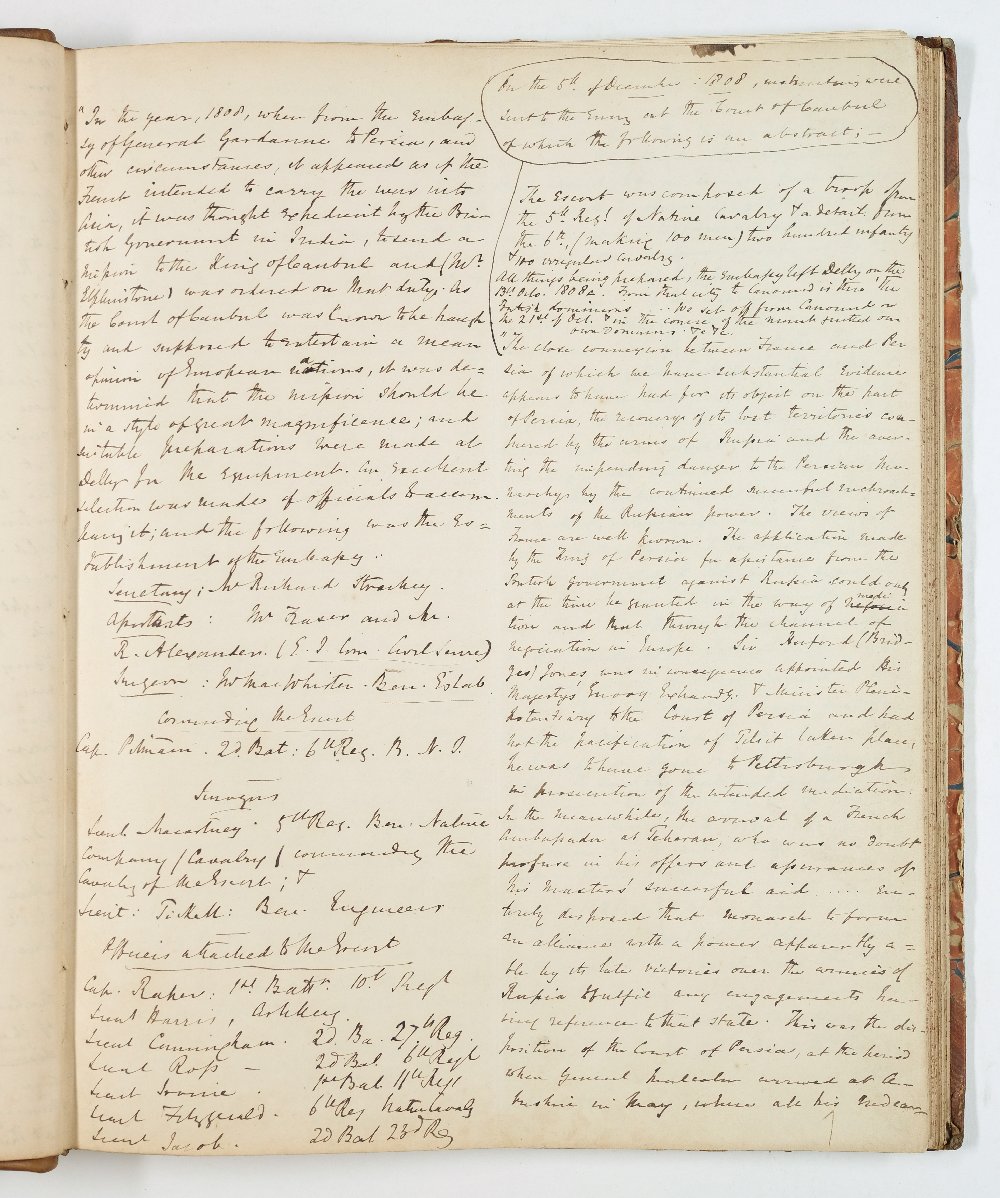 "In the year, 1808, when from the Embas-
sy of General Gardanne to Persia, and
other circumstances, it appeared as if the
French intended to carry the war into
Asia, it was thought expedient by the Bri-
tish Government in India, to send a
mission to the King of Caubul and (Mr.
Elphinstone) was ordered on that duty. As
the Court of Caubul was known to be haugh
ty and supposed to entertain a mean
opinion of European nations, it was de=
termined that the mission should be
in a style of great magnificence; and
suitable preparations were made at
Delhy for the Equipment. An Excellent
selection was made of officials to accom-
pany it; and the following was the Es=
tablishment of the Embassy:
Secretary; Mr Richard Strachey.
Mr Fraser and Mr.
R. Alexander. (E. I Com. Civil Service)
Surgeon: Mr MacWhirter. Ben. Estab.
Commanding the Escort
Cap. Pitman. 2d. Bat: 6th Reg. B. N. I.
Surveyors
Lieut Macartney. 5th Reg. Ben. Native
Company (Cavalry) commanding the
Cavalry of the Escort; &
Lieut: Tickell: Ben. Engineers
Officers attached to the Escort
Cap. Raper: 1st Battn. 10th Regt
Lieut Harris, Artillery.
Lieut Cunningham. 2d. Ba. 27th Reg.
Lieut Ross – 2d Bat 6th Regt
Lieut Irvine. 1st Bat 11th Regt
Lieut Fitzgerald. 6th Reg Native Cavaly
Lieut Jacob. 2d Bat 23d Reg
On the 5th of December: 1808, instructions were
sent to the Envoy at the Court of Caubul
of which the following is an abstract; –
The Escort was composed of a troop from
the 5th Regt of Native Cavalry & a detail from
the 6th, (making 100 men) two hundred infantry
& 100 irregular Cavalry.
All things being prepared, the Embassy left Delhy on the
13th Octo. 1808. From that city to Canound is thro the
British dominions ... We set off from Canound on
the 21st of Oct. & in the course of the march quitted our
own Dominions &c &c.
"The close connexion between France and Per
sia of which we have substantial evidence
appears to have had for its object on the part
of Persia, the recovery of its lost territories con-
quered by the arms of Russia and the aver-
ting the impending danger to the Persian Mo-
narchy by the continued successful encroach-
ments of the Russian power. The views of
France are well known. The application made
by the King of Persia for assistance from the
British Government against Russia could only
at the time be granted in the way of media
tion and that through the channel of
negociation in Europe. Sir Harford (Brid-
ges) Jones was in consequence appointed His
Majestys Envoy Extraody: & Minister Pleni-
potentiary to the Court of Persia and had
not the pacification of Tilsit taken place,
he was to have gone to Pettersburgh
in prosecution of the intended mediation.
In the meanwhile, the arrival of a French
Ambassador at Teheran, who was no doubt
profuse in his offers and assurances of
his Masters' successful aid ..... en-
tirely disposed that monarch to form
an alliance with a power apparently a=
ble by its late victories over the armies of
Russia to fulfil any engagements ha-
ving reference to that state. This was the dis-
position of the Court of Persia, at the period
when General Malcolm arrived at A-
bushire in May, where all his endeav-